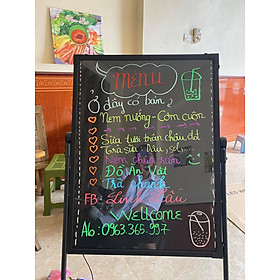 MENU
Ở đây có bán
Nem nướng - Cơm cuộn
Sữa tươi trân châu đđ
Trà sữa: Dâu, sol
Nem chua rán
Đồ Ăn Vặt
Trà chanh
FB: Linh
Wellcome
A6: 0963.365.997